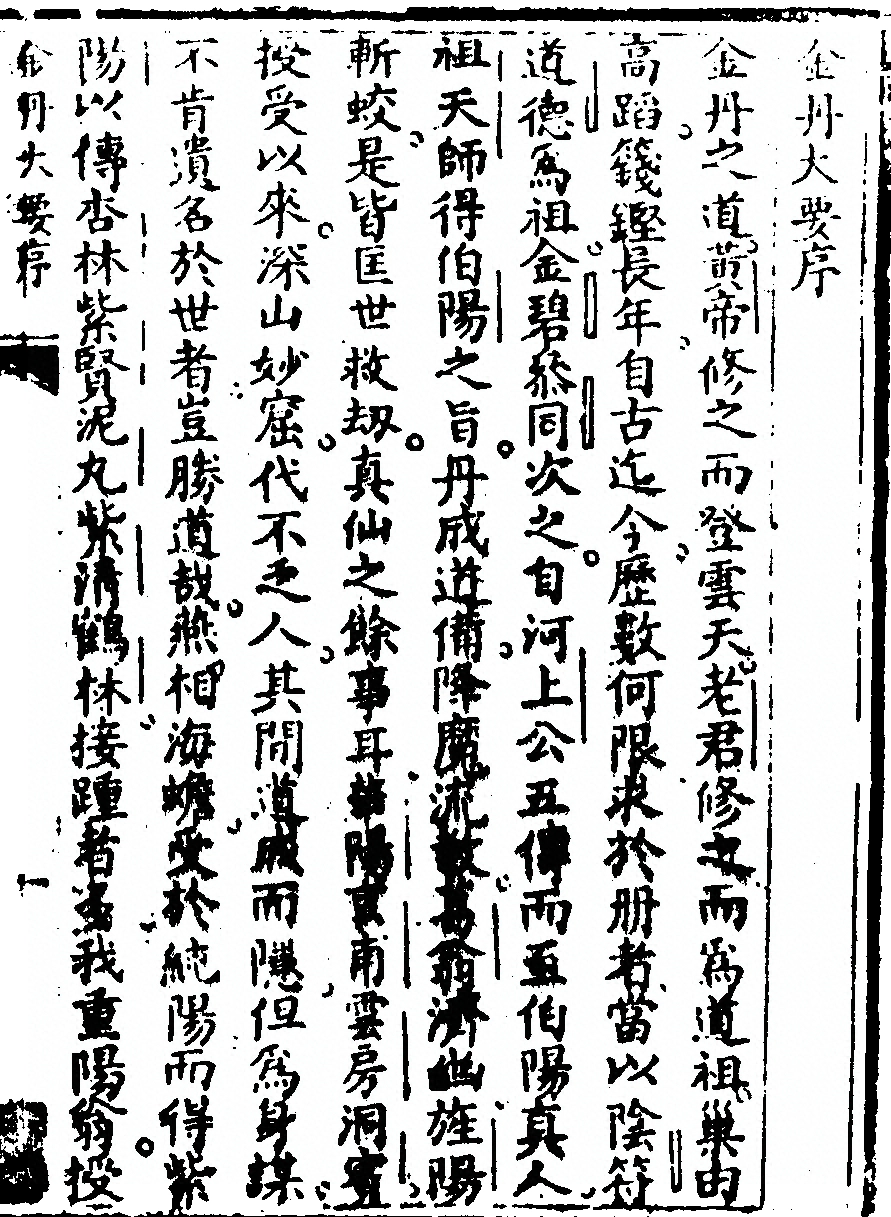 金丹大要序
金丹之道黃帝修之而登雲天老君修之而爲道祖巢由
高蹈籛鏗長年自古迄今歷數何限求於册者當以陰符
道德爲祖金碧叅同次之自河上公五傳而至伯陽真人
祖天師得伯陽之旨丹成道備降魔流教葛翁濟世旌陽
斬蛟是皆匡世救劫真仙之餘事耳華陽玄甫雲房洞賓
授受以來深山妙窟代不乏人其間道成而隱但爲身謀
不肯遺名於世者豈勝道哉燕相海蟾受於純陽而得紫
陽以傳杏林紫賢泥丸紫清鶴林接踵者多我重陽翁授
金丹大要序